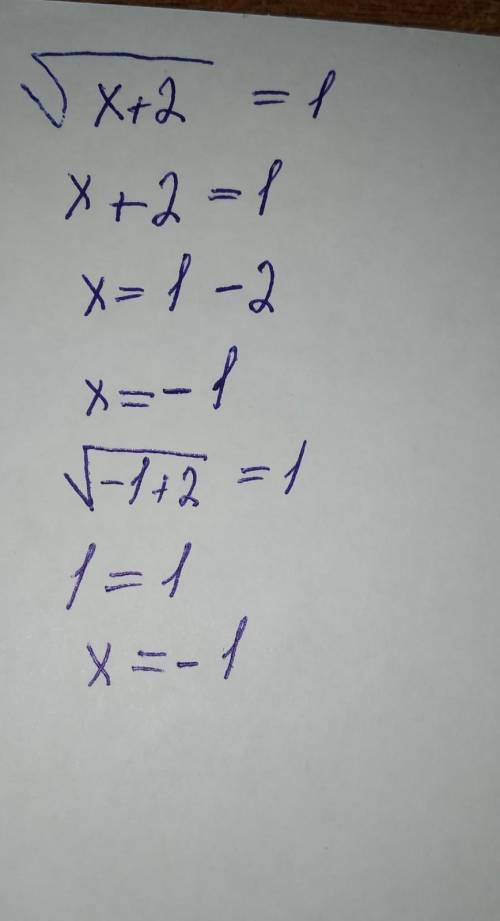 √(x+2) = 1
x+2 = 1
x = 1 - 2
x = - 1
√(-1+2) = 1
1 = 1
x = - 1